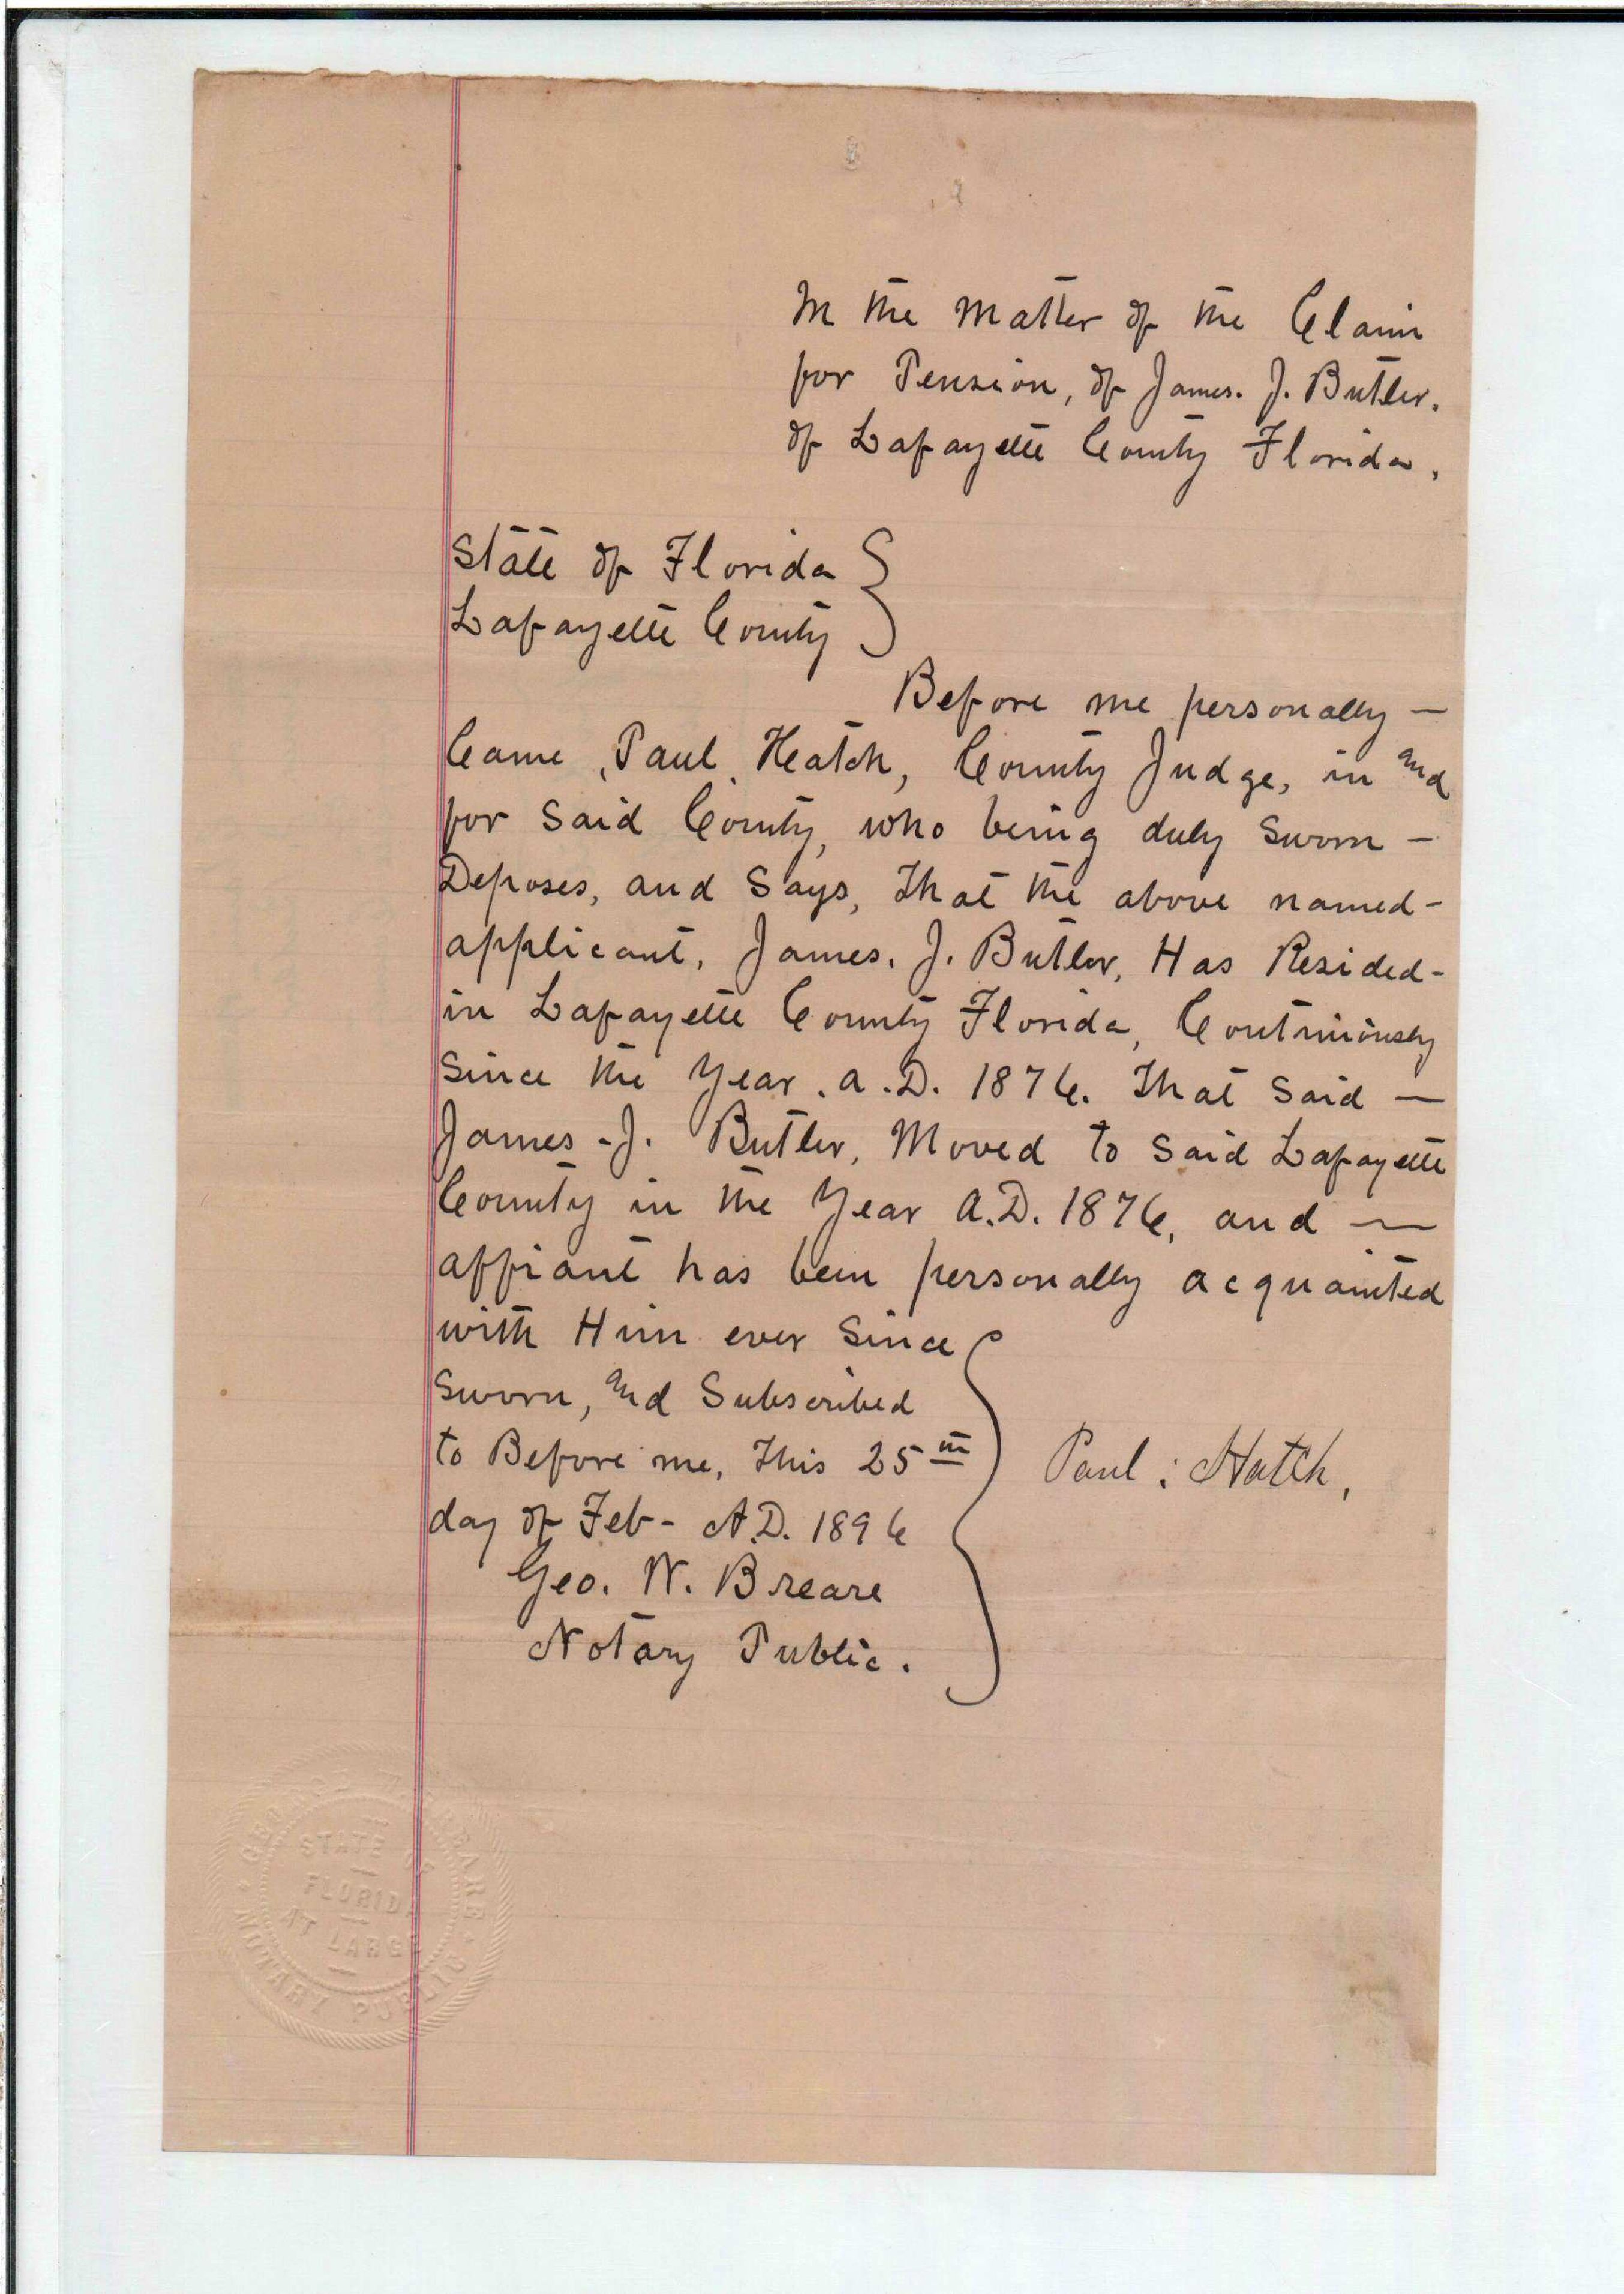 In the Matter of the Claim
for Pension, of James. J. Butler.
of Lafayette County Florida.
State of Florida
Lafayette County
Before me personally —
Came, Paul, Heatch, County Judge, in and
for Said County, who being duly Sworn —
Deposes, and Says, That the above named -
applicant, James. J. Butler, Has Resided -
in Lafayette County Florida, Continuously
Since the Year. A.D. 1876. That Said —
James - J. Butler, Moved to Said Lafayette
County in the Year A.D. 1876, and —
affiant has been personally acquainted
with Him ever Since
Sworn, and Subscribed
to Before me, This 25th
day of Feb - A.D. 1896
Paul : Hatch,
Geo. W. Breare
Notary Public.
GEORGE W. BREARE
STATE OF
FLORIDA
AT LARGE
NOTARY PUBLIC